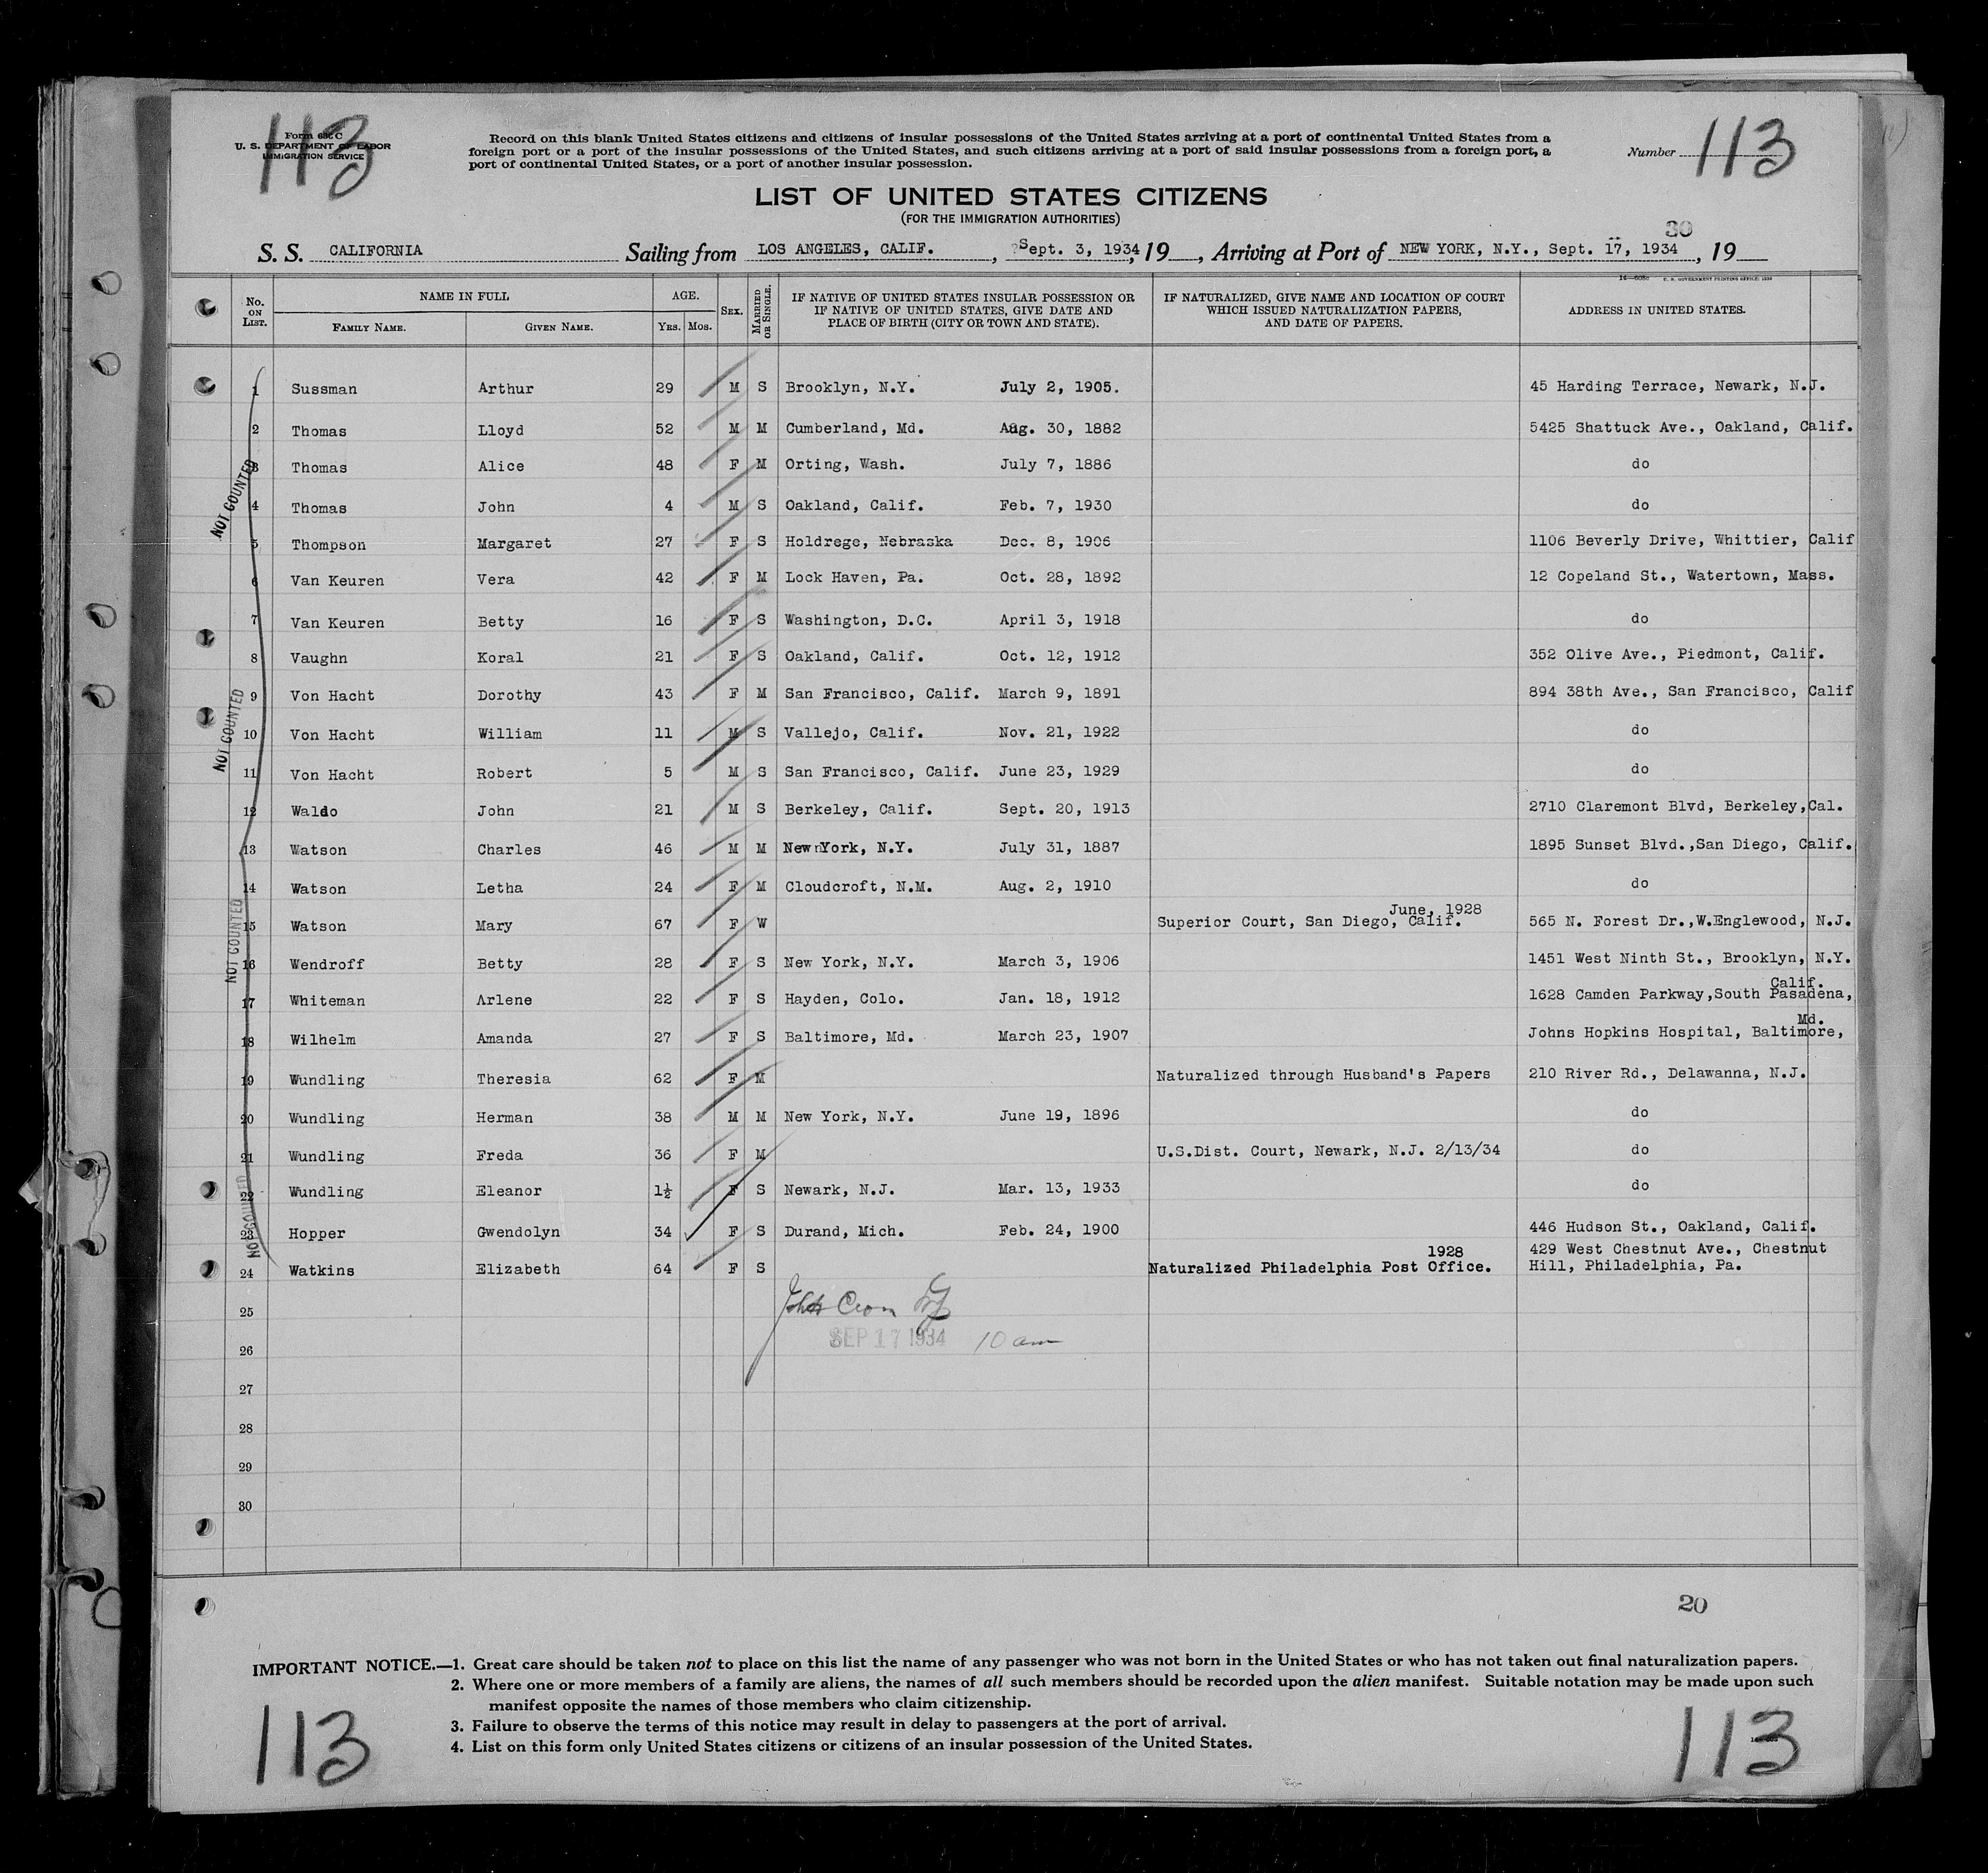 113
Form 630 C
U. S. DEPARTMENT OF LABOR
IMMIGRATION SERVICE
Record on this blank United States citizens and citizens of insular possessions of the United States arriving at a port of continental United States from a
foreign port or a port of the insular possessions of the United States, and such citizens arriving at a port of said insular possessions from a foreign port, a
port of continental United States, or a port of another insular possession.
Number 113
LIST OF UNITED STATES CITIZENS
(FOR THE IMMIGRATION AUTHORITIES)
30
S. S. CALIFORNIA Sailing from LOS ANGELES, CALIF. , Sept. 3, 1934, 19 , Arriving at Port of NEW YORK, N.Y., Sept. 17, 1934 , 19
U. S. GOVERNMENT PRINTING OFFICE
No. ON LIST. NAME IN FULL FAMILY NAME. GIVEN NAME. AGE. YRS. MOS. SEX. MARRIED OR SINGLE. IF NATIVE OF UNITED STATES INSULAR POSSESSION OR IF NATIVE OF UNITED STATES, GIVE DATE AND PLACE OF BIRTH (CITY OR TOWN AND STATE). IF NATURALIZED, GIVE NAME AND LOCATION OF COURT WHICH ISSUED NATURALIZATION PAPERS, AND DATE OF PAPERS. ADDRESS IN UNITED STATES.
1 Sussman Arthur 29 M S Brooklyn, N.Y. July 2, 1905. 45 Harding Terrace, Newark, N.J.
2 Thomas Lloyd 52 M M Cumberland, Md. Aug. 30, 1882 5425 Shattuck Ave., Oakland, Calif.
3 Thomas Alice 48 F M Orting, Wash. July 7, 1886 do
NOT COUNTED
4 Thomas John 4 M S Oakland, Calif. Feb. 7, 1930 do
5 Thompson Margaret 27 F S Holdrege, Nebraska Dec. 8, 1906 1106 Beverly Drive, Whittier, Calif
6 Van Keuren Vera 42 F M Lock Haven, Pa. Oct. 28, 1892 12 Copeland St., Watertown, Mass.
7 Van Keuren Betty 16 F S Washington, D.C. April 3, 1918 do
8 Vaughn Koral 21 F S Oakland, Calif. Oct. 12, 1912 352 Olive Ave., Piedmont, Calif.
9 Von Hacht Dorothy 43 F M San Francisco, Calif. March 9, 1891 894 38th Ave., San Francisco, Calif
NOT COUNTED
10 Von Hacht William 11 M S Vallejo, Calif. Nov. 21, 1922 do
11 Von Hacht Robert 5 M S San Francisco, Calif. June 23, 1929 do
12 Waldo John 21 M S Berkeley, Calif. Sept. 20, 1913 2710 Claremont Blvd, Berkeley,Cal.
13 Watson Charles 46 M M New York, N.Y. July 31, 1887 1895 Sunset Blvd.,San Diego, Calif.
14 Watson Letha 24 F M Cloudcroft, N.M. Aug. 2, 1910 do
June, 1928
15 Watson Mary 67 F W Superior Court, San Diego, Calif. 565 N. Forest Dr.,W.Englewood, N.J.
NOT COUNTED
16 Wendroff Betty 28 F S New York, N.Y. March 3, 1906 1451 West Ninth St., Brooklyn, N.Y.
Calif.
17 Whiteman Arlene 22 F S Hayden, Colo. Jan. 18, 1912 1628 Camden Parkway,South Pasadena,
Md.
18 Wilhelm Amanda 27 F S Baltimore, Md. March 23, 1907 Johns Hopkins Hospital, Baltimore,
19 Wundling Theresia 62 F M Naturalized through Husband's Papers 210 River Rd., Delawanna, N.J.
20 Wundling Herman 38 M M New York, N.Y. June 19, 1896 do
21 Wundling Freda 36 F M U.S.Dist. Court, Newark, N.J. 2/13/34 do
22 Wundling Eleanor 1½ F S Newark, N.J. Mar. 13, 1933 do
NOT COUNTED
23 Hopper Gwendolyn 34 F S Durand, Mich. Feb. 24, 1900 446 Hudson St., Oakland, Calif.
1928 429 West Chestnut Ave., Chestnut
24 Watkins Elizabeth 64 F S Naturalized Philadelphia Post Office. Hill, Philadelphia, Pa.
25
SEP 17 1934 10 am
26
27
28
29
30
20
IMPORTANT NOTICE.—1. Great care should be taken not to place on this list the name of any passenger who was not born in the United States or who has not taken out final naturalization papers.
2. Where one or more members of a family are aliens, the names of all such members should be recorded upon the alien manifest. Suitable notation may be made upon such
manifest opposite the names of those members who claim citizenship.
3. Failure to observe the terms of this notice may result in delay to passengers at the port of arrival.
4. List on this form only United States citizens or citizens of an insular possession of the United States.
113 113